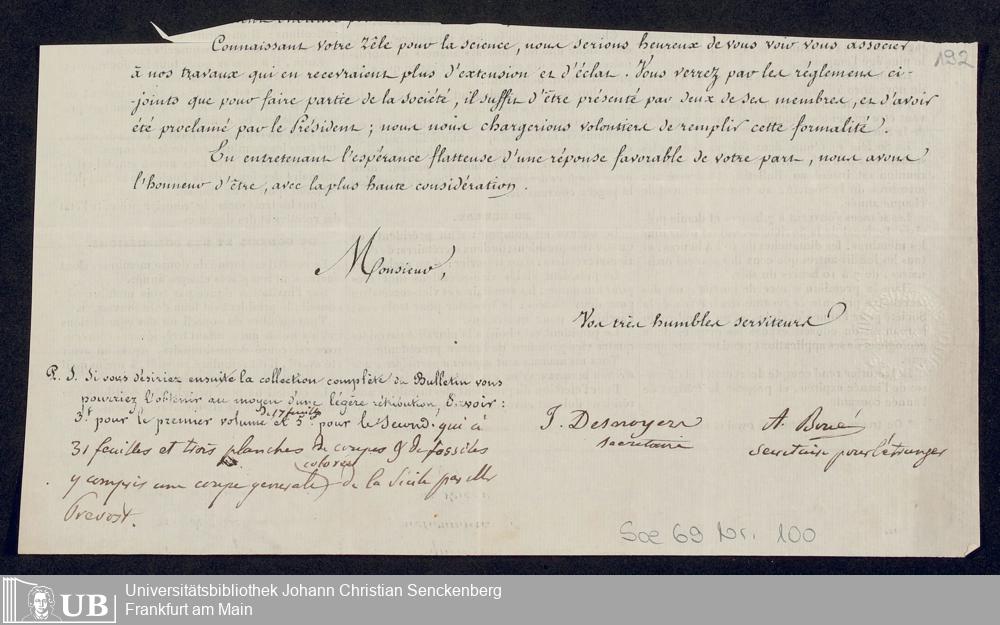 Connaissant votre zêle pour la science, nous serions heureux de vous voir vous associer
à nos travaux qui en recevraient plus d'extension et d'éclat. Vous verrez par les réglemens ci-
-joints que pour faire partie de la société, il suffit d'être présenté par deux de ses membres, et d'avoir
été proclamé par le Président; nous nous chargerions volontiers de remplir cette formalité.
En entretenant l'espérance flatteuse d'une réponse favorable de votre part, nous avons
l'honneur d'être, avec la plus haute considération.
192
Monsieur,
Vos très humbles serviteurs
P. S. Si vous désiriez ensuite la collection complète du Bulletin vous
pourriez l'obtenir au moyen d'une légère rétribution, Savoir:
de 17 feuilles
3f pour le premier volume et 5f pour le second. qui a
31 feuilles et trois planches de coupes & de fossiles
colorée
y compris une coupe generale de la Sicile par Mr
Prevost.
J. Desnoyers
secretaire
A. Boué
secretaire pour l'étranger
Soe 69 Nr. 100
UB
Universitätsbibliothek Johann Christian Senckenberg
Frankfurt am Main